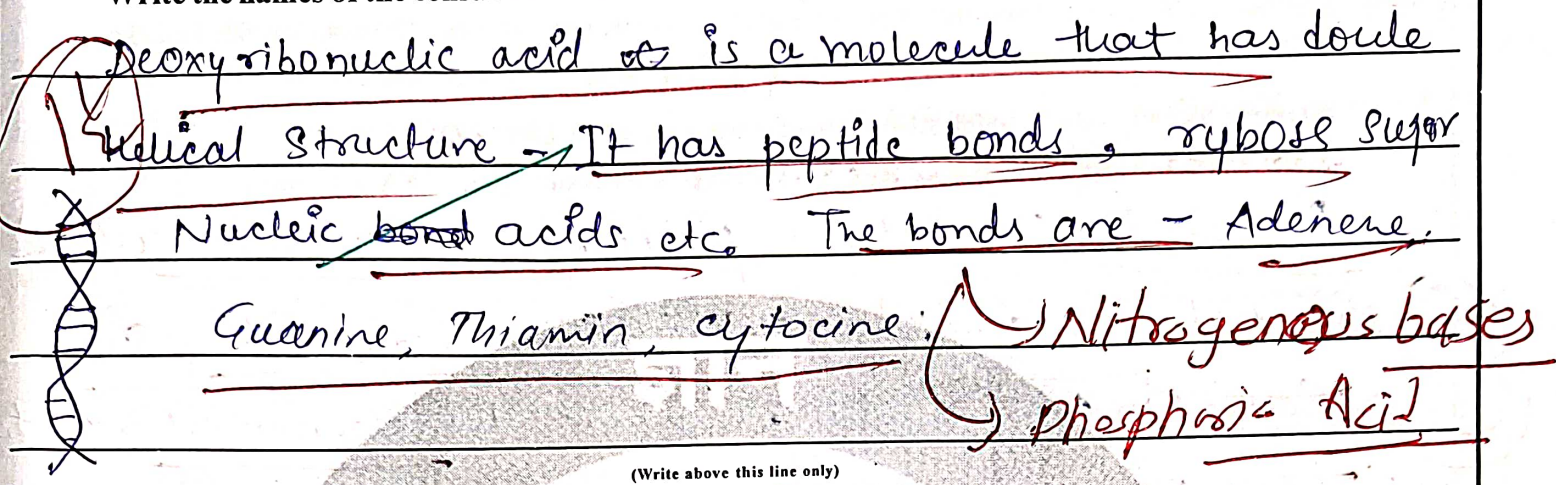 Deoxyribonuclic acid is a molecule that has doule
Helical Structure - It has peptide bonds, rybose sugar
Nucleic bond acids etc. The bonds are - Adenene.
Guanine, Thiamin, cytocine.
Nitrogenous bases
Phosphoric Acid
(Write above this line only)